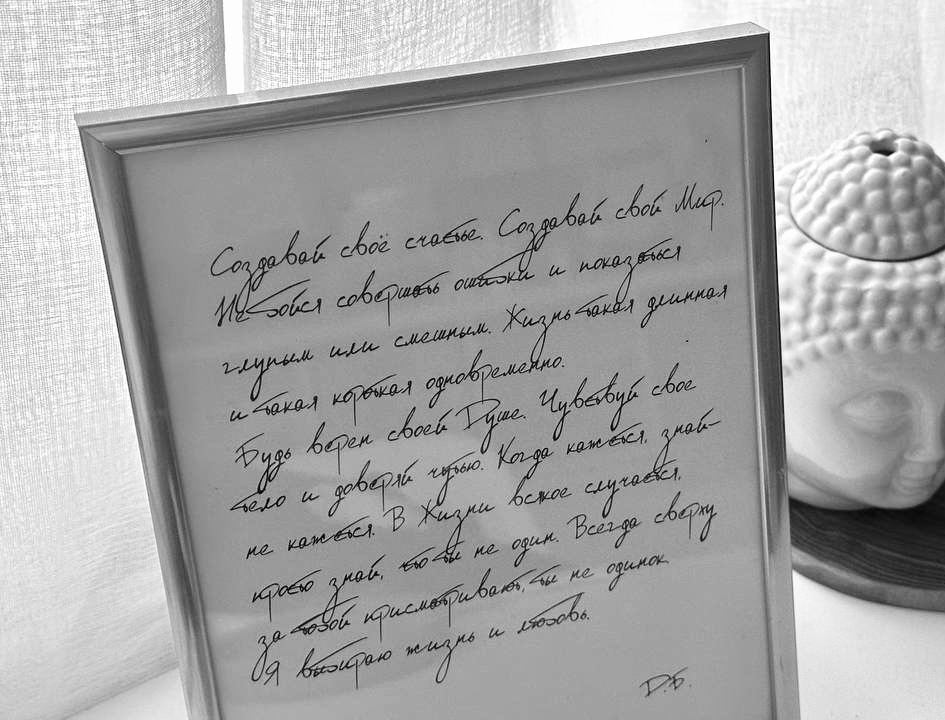 Создавай своё счастье. Создавай свой Мир.
Не бойся совершать ошибки и показаться
глупым или смешным. Жизнь такая длинная
и такая короткая одновременно.
Будь верен своей Душе. Чувствуй свое
тело и доверяй чутью. Когда кажется, знай-
не кажется. В Жизни всякое случается,
просто знай, что ты не один. Всегда сверху
за тобой присматривают, ты не одинок.
Я выбираю жизнь и любовь.
Д.Б.